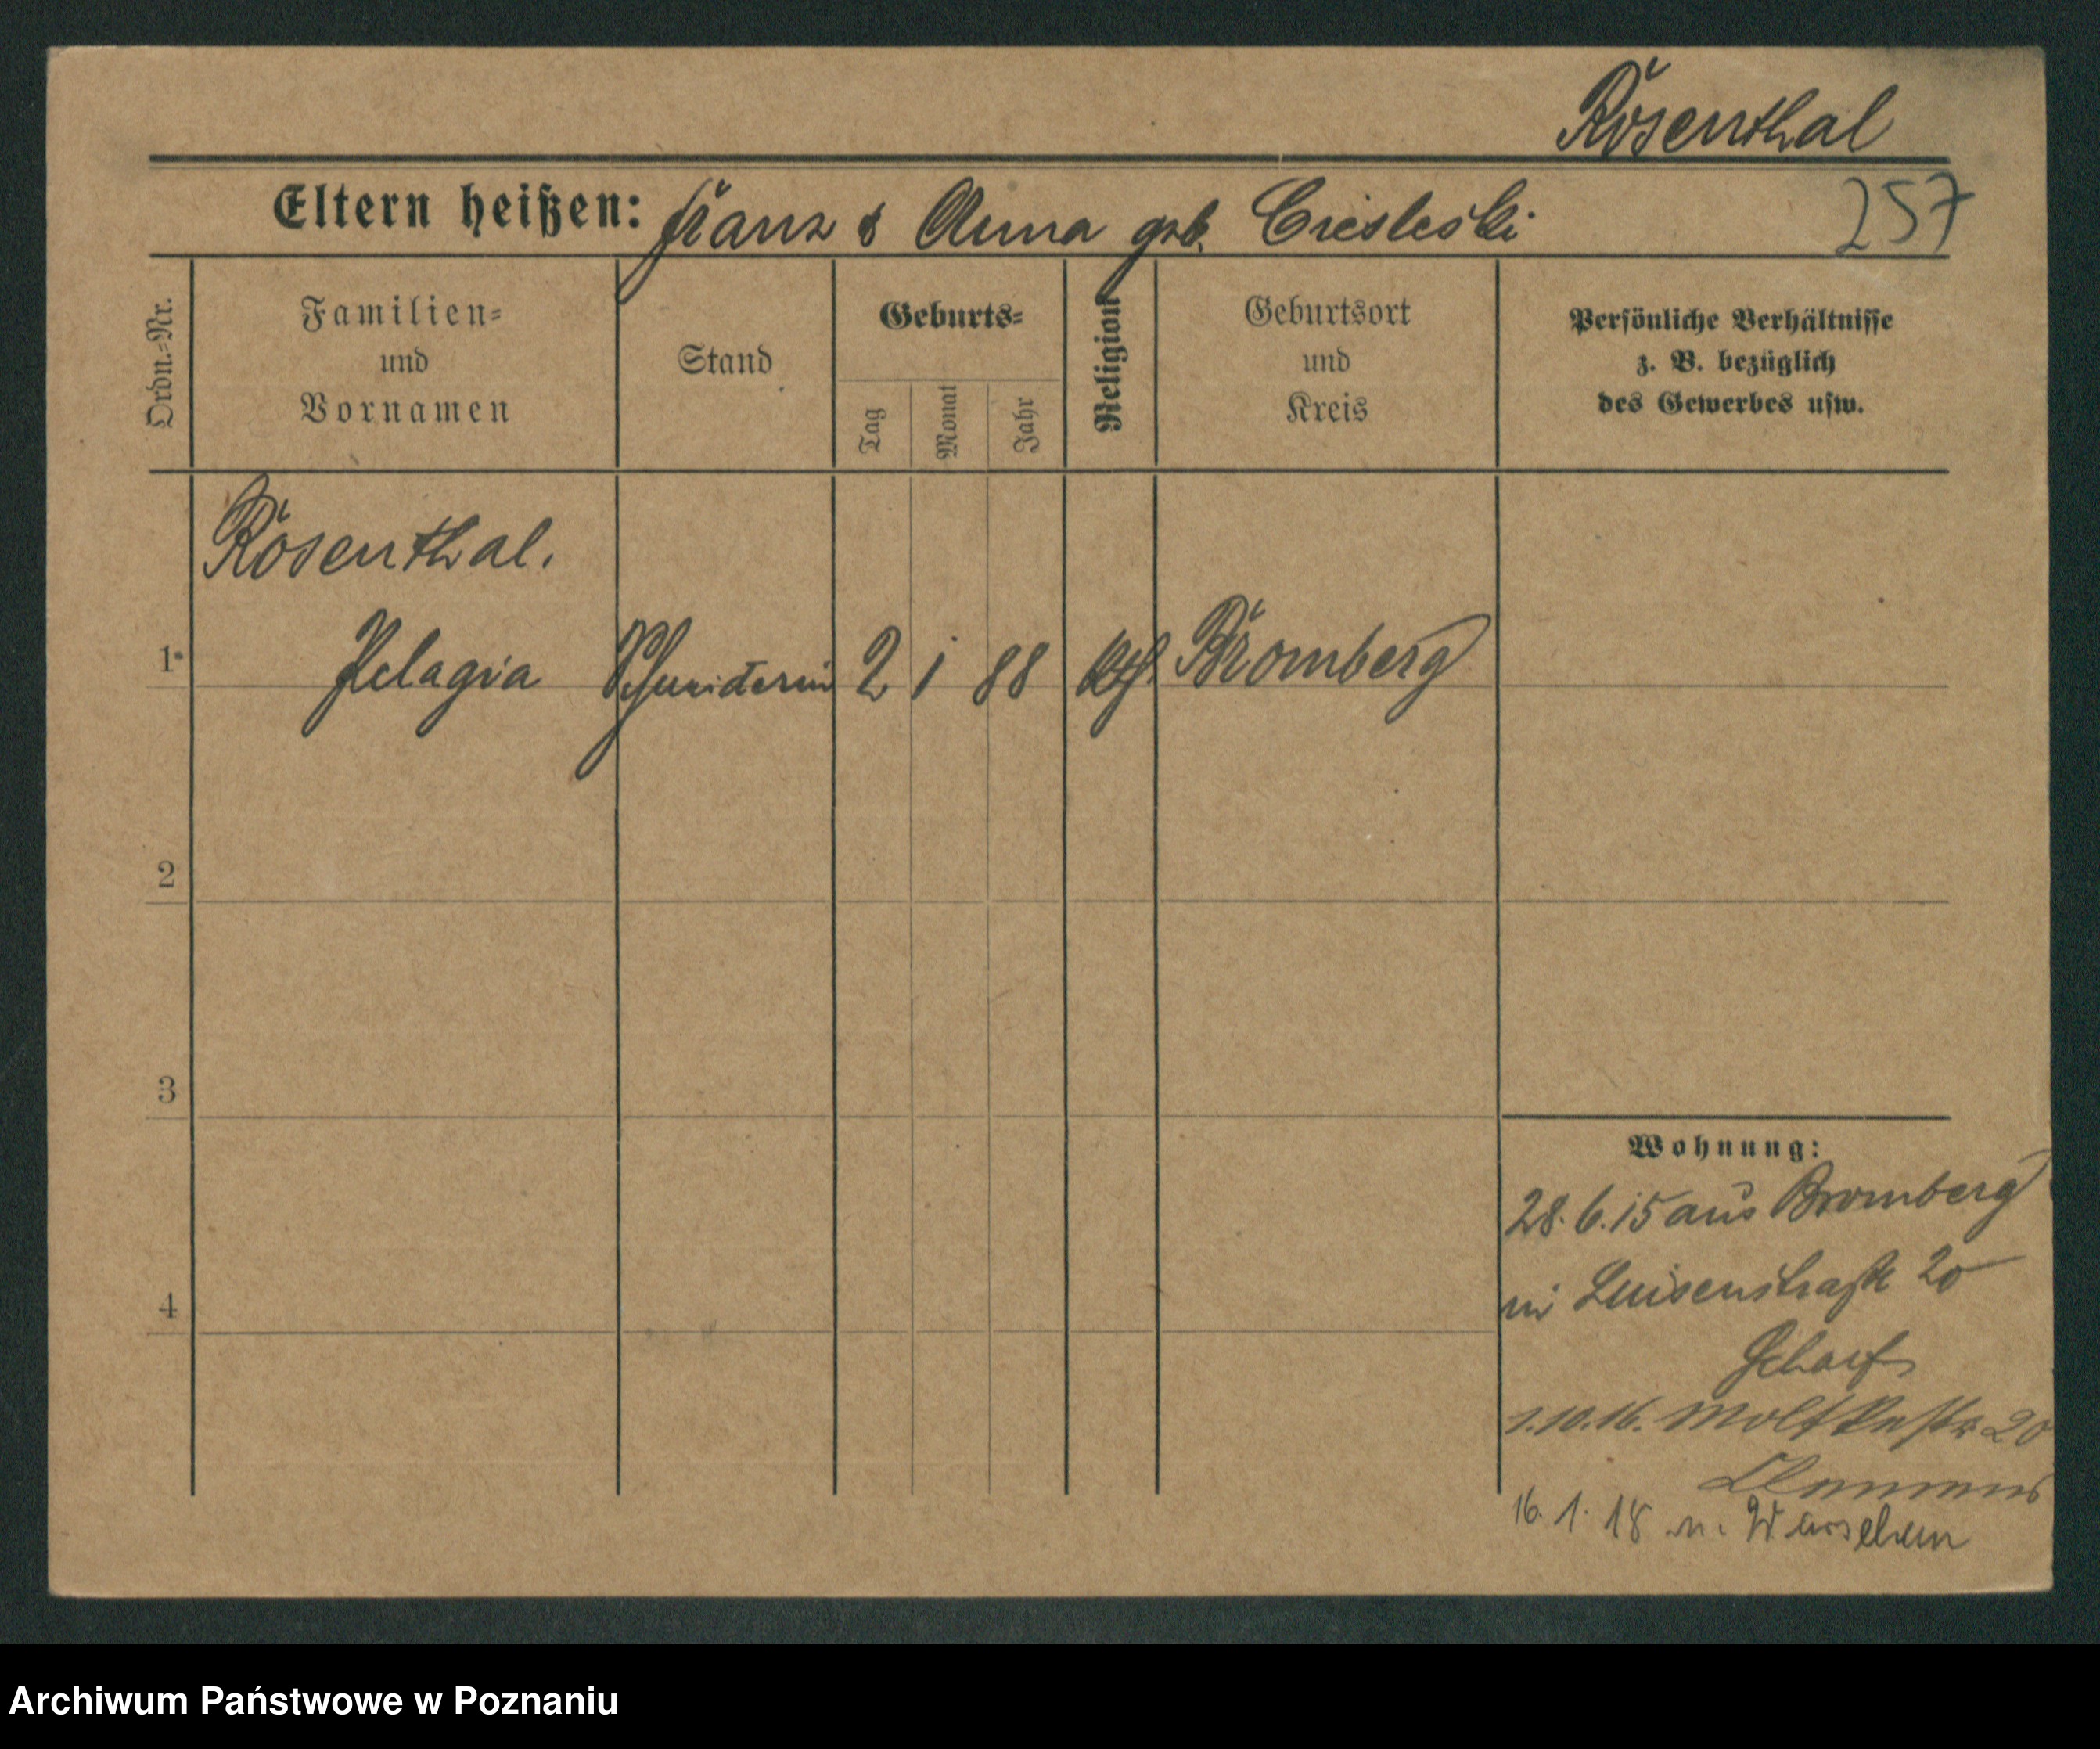 Rosenthal
Eltern heißen: Franz & Anna geb.Ciesleski
257
Ordn.-Nr.
Familien-
und
Vornamen
Stand
Geburts-
Tag
Monat
Jahr
Religion
Geburtsort
und
Kreis
Persönliche Verhältnisse
z. B. bezüglich
des Gewerbes usw.
Rosenthal.
1. Pelagia Schneiderin 2 1 88 kth. Bromberg
2
3
4
Wohnung:
28. 6. 15 aus Bromberg
Luisenstraße 20
Scharf
1.10.16. Moltkestr 20
16. 1. 18 n.
Archiwum Państwowe w Poznaniu